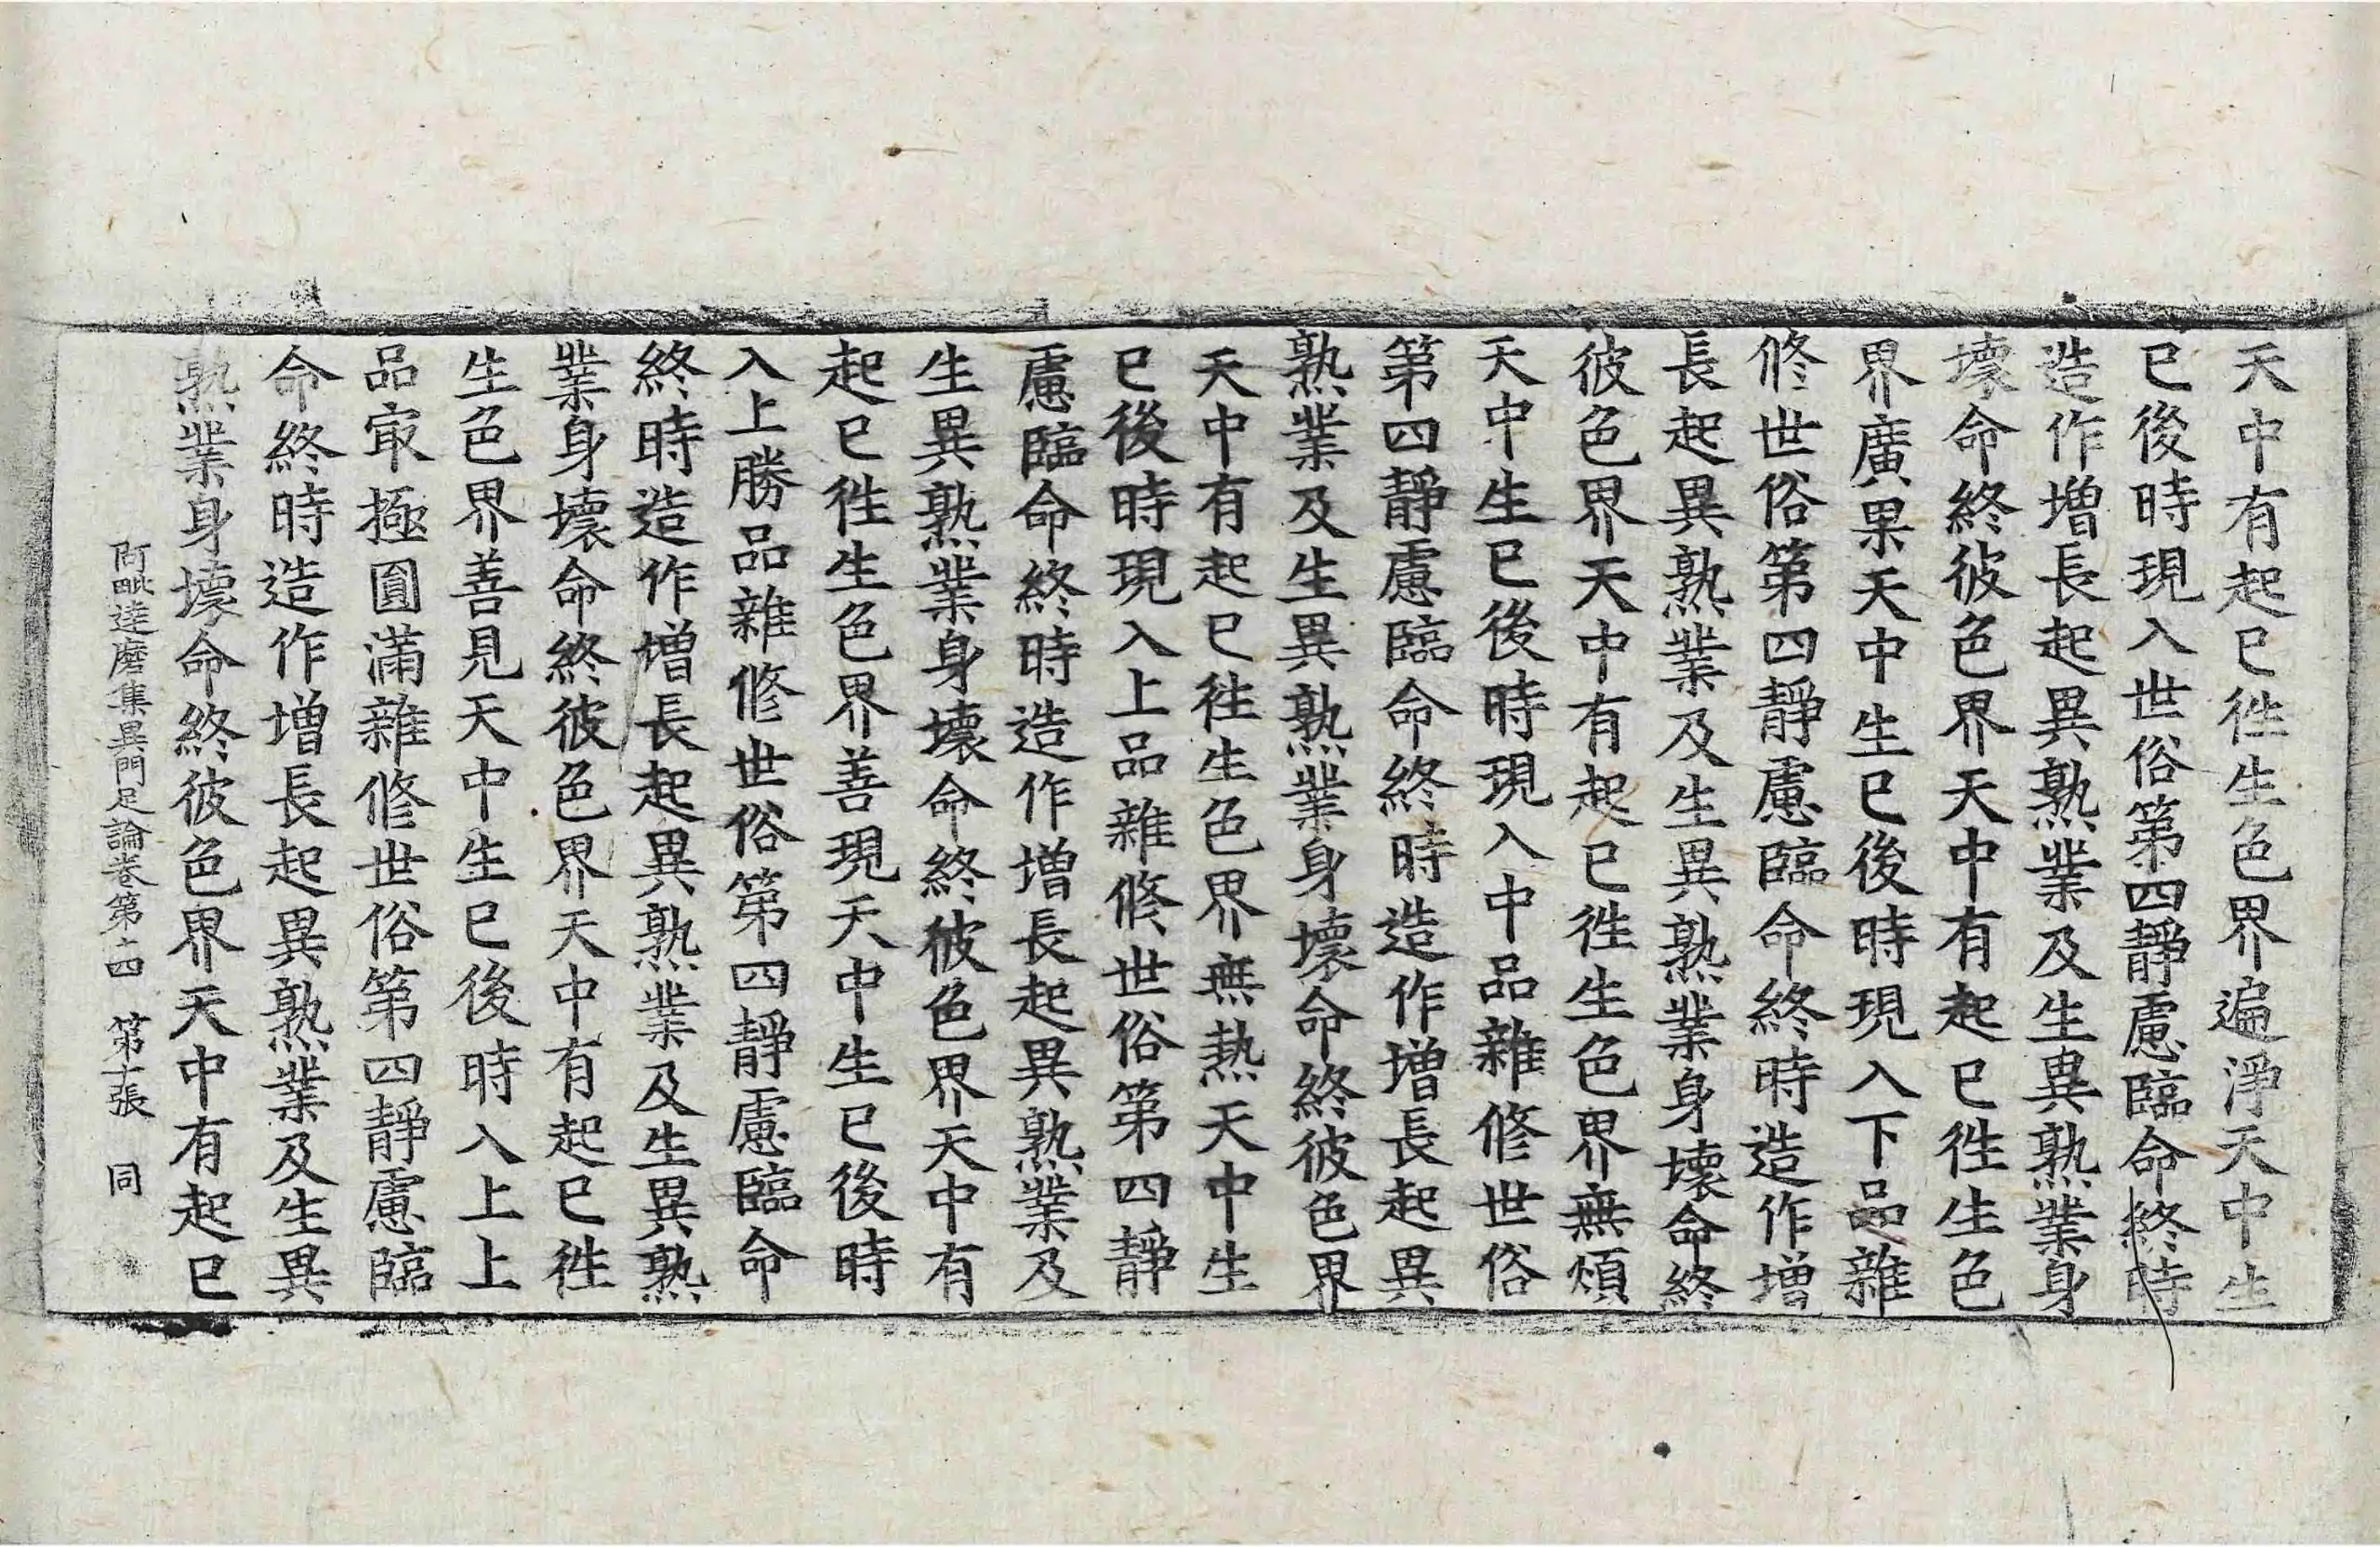 天中有起已徃生色界遍淨天中生
已後時現入世俗第四靜慮臨命終時
造作增長起異熟業及生異熟業身
壞命終彼色界天中有起已徃生色
界廣果天中生已後時現入下品雜
修世俗第四靜慮臨命終時造作增
長起異熟業及生異熟業身壞命終
彼色界天中有起已徃生色界無煩
天中生已後時現入中品雜修世俗
第四靜慮臨命終時造作增長起異
熟業及生異熟業身壞命終彼色界
天中有起已徃生色界無熱天中生
已後時現入上品雜修世俗第四靜
慮臨命終時造作增長起異熟業及
生異熟業身壞命終彼色界天中有
起已徃生色界善現天中生已後時
入上勝品雜修世俗第四靜慮臨命
終時造作增長起異熟業及生異熟
業身壞命終彼色界天中有起已徃
生色界善見天中生已後時入上上
品㝡極圓滿雜修世俗第四靜慮臨
命終時造作增長起異熟業及生異
熟業身壞命終彼色界天中有起已
阿毗達磨集異門足論卷第十四 第十張 同